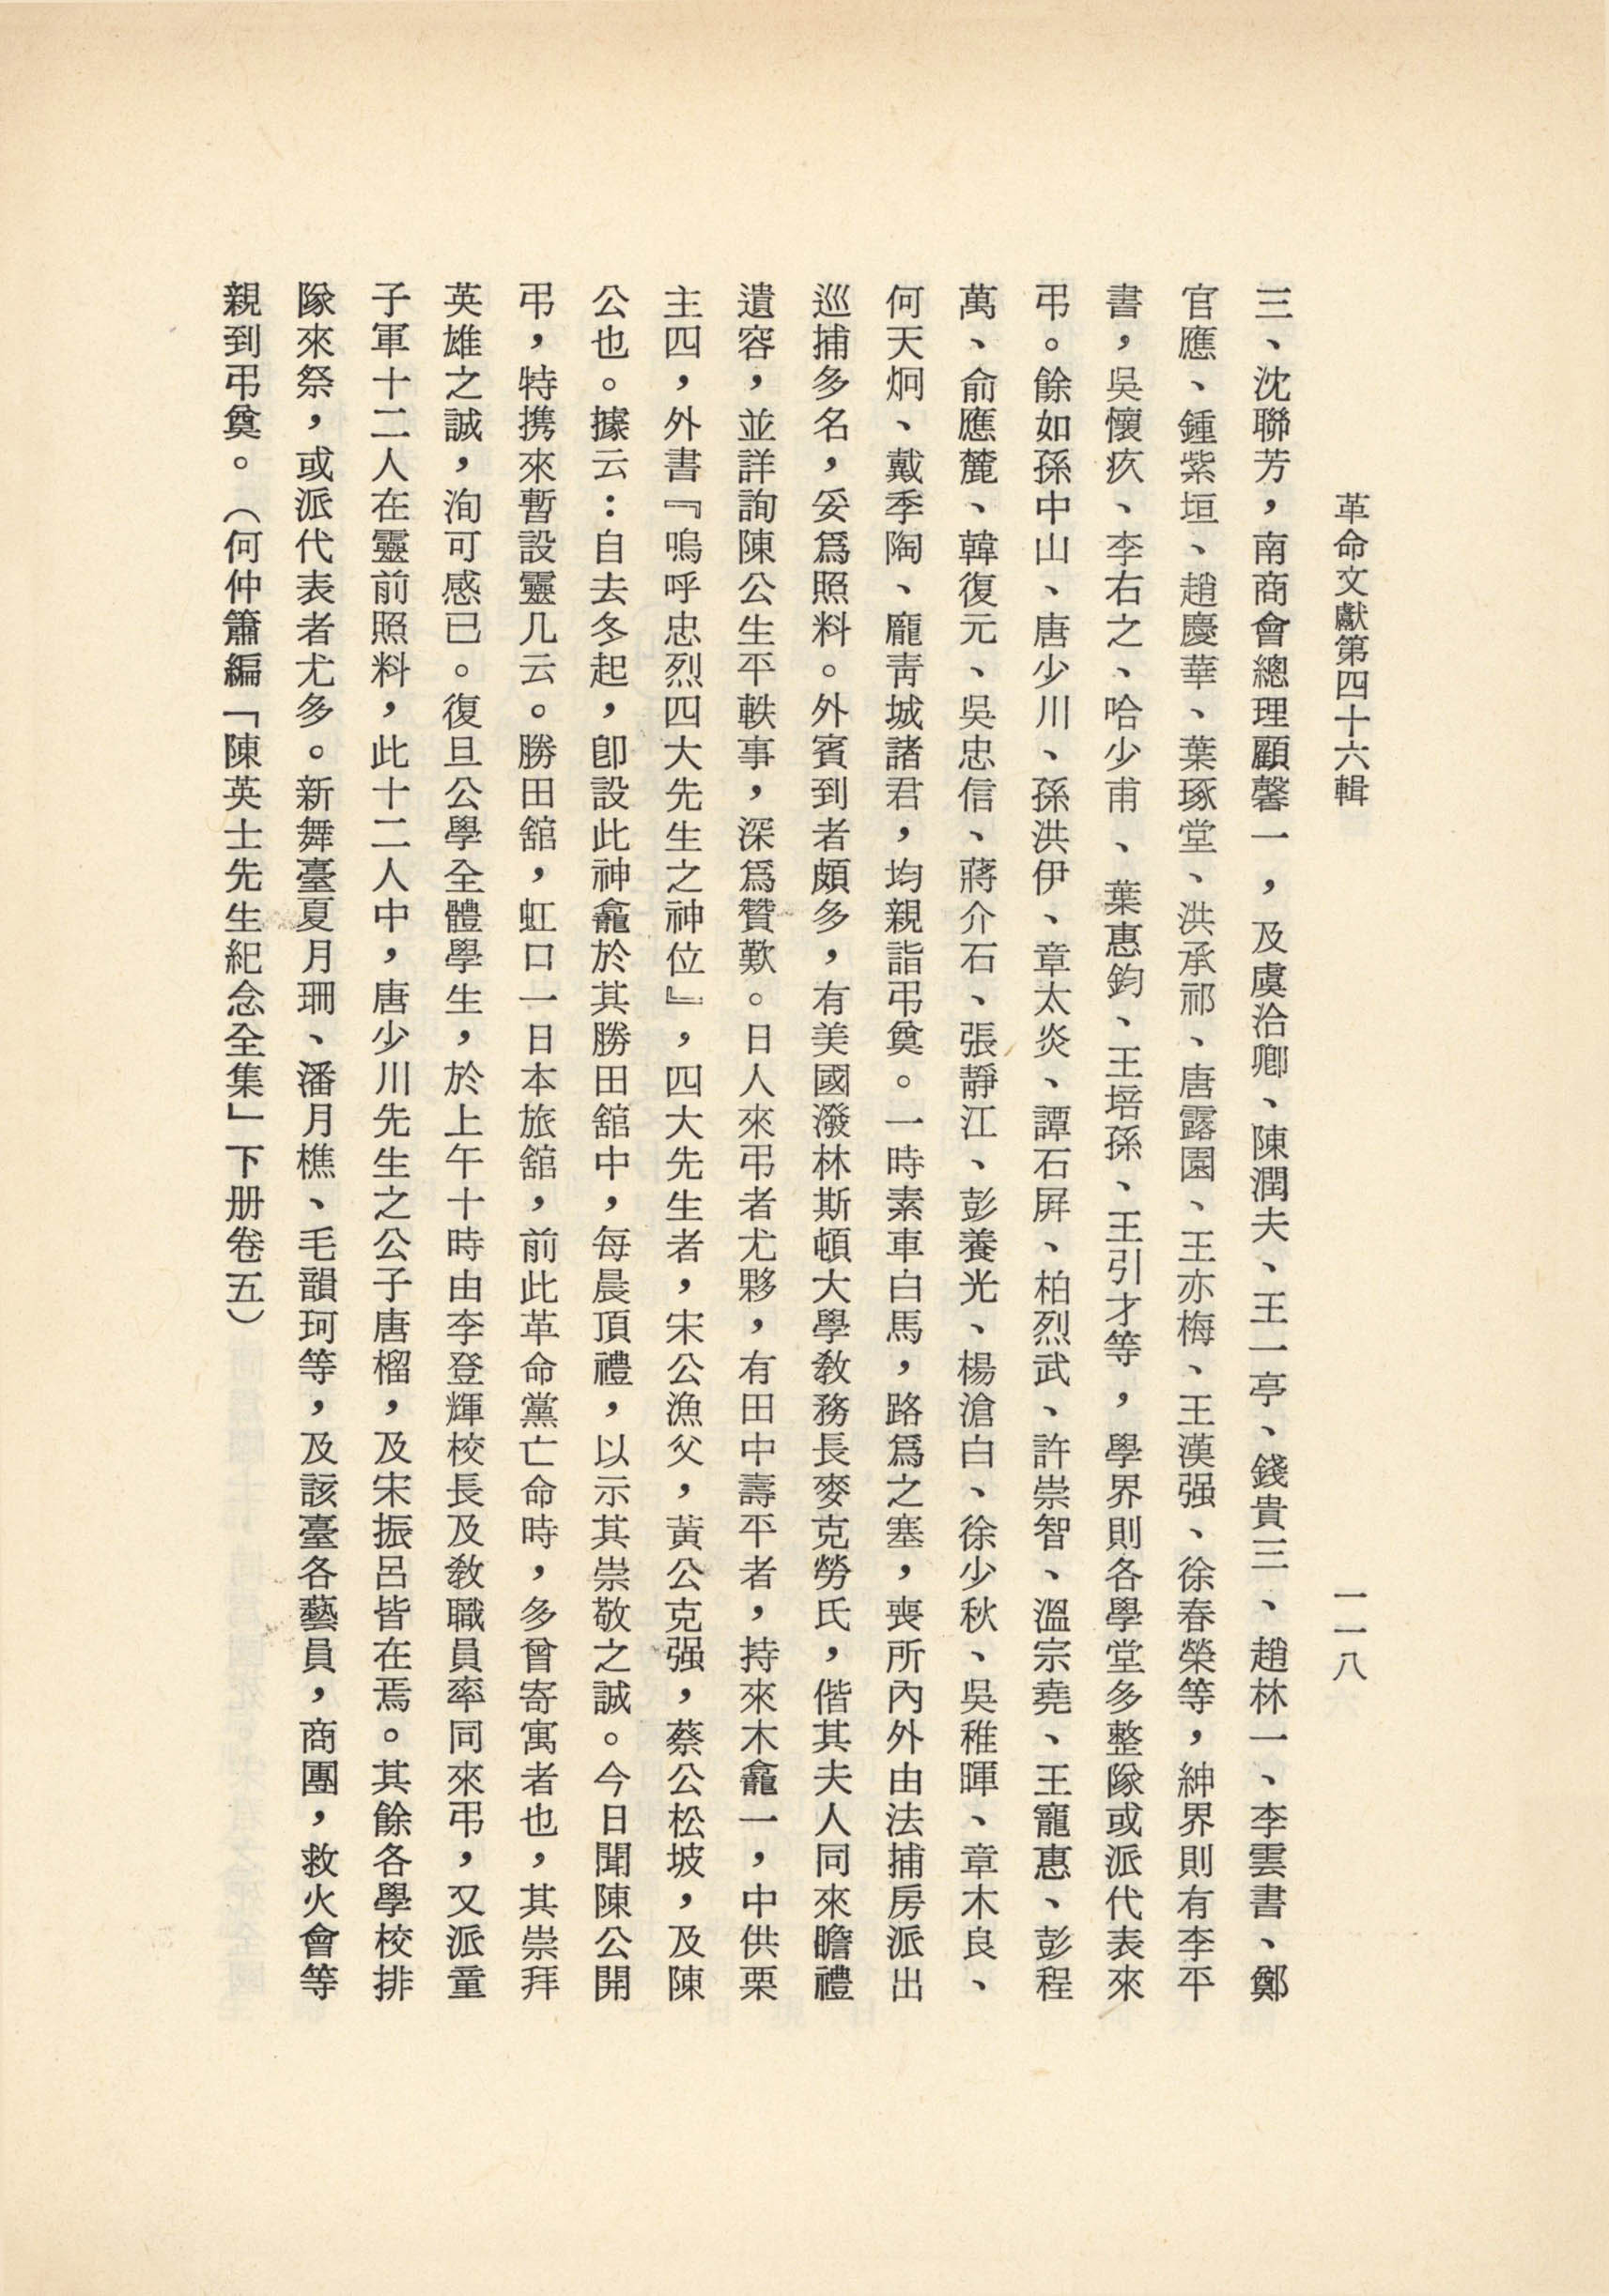 革命文獻第四十六輯
一一八
三、沈聯芳，南商會總理顧馨一，及虞洽卿、陳潤夫、王一亭、錢貴三、趙林一、李雲書、鄭
官應、鍾紫垣、趙慶華、葉琢堂、洪承祁、唐露園、王亦梅、王漢强、徐春榮等，紳界則有李平
書，吳懷疚、李右之、哈少甫、葉惠鈞、王培孫、王引才等，學界則各學堂多整隊或派代表來
弔。餘如孫中山、唐少川、孫洪伊、章太炎、譚石屏、柏烈武、許崇智、溫宗堯、王寵惠、彭程
萬、俞應麓、韓復元、吳忠信、蔣介石、張靜江、彭養光、楊滄白、徐少秋、吳稚暉、章木良、
何天炯、戴季陶、龐靑城諸君，均親詣弔奠。一時素車白馬，路爲之塞，喪所內外由法捕房派出
巡捕多名，妥爲照料。外賓到者頗多，有美國潑林斯頓大學敎務長麥克勞氏，偕其夫人同來瞻禮
遺容，並詳詢陳公生平軼事，深爲贊歎。日人來弔者尤夥，有田中壽平者，持來木龕一，中供栗
主四，外書『嗚呼忠烈四大先生之神位』，四大先生者，宋公漁父，黃公克强，蔡公松坡，及陳
公也。據云：自去冬起，卽設此神龕於其勝田舘中，每晨頂禮，以示其崇敬之誠。今日聞陳公開
弔，特携來暫設靈几云。勝田舘，虹口一日本旅舘，前此革命黨亡命時，多曾寄寓者也，其崇拜
英雄之誠，洵可感已。復旦公學全體學生，於上午十時由李登輝校長及敎職員率同來弔，又派童
子軍十二人在靈前照料，此十二人中，唐少川先生之公子唐榴，及宋振呂皆在焉。其餘各學校排
隊來祭，或派代表者尤多。新舞臺夏月珊、潘月樵、毛韻珂等，及該臺各藝員，商團，救火會等
親到弔奠。（何仲簫編「陳英士先生紀念全集」下册卷五）